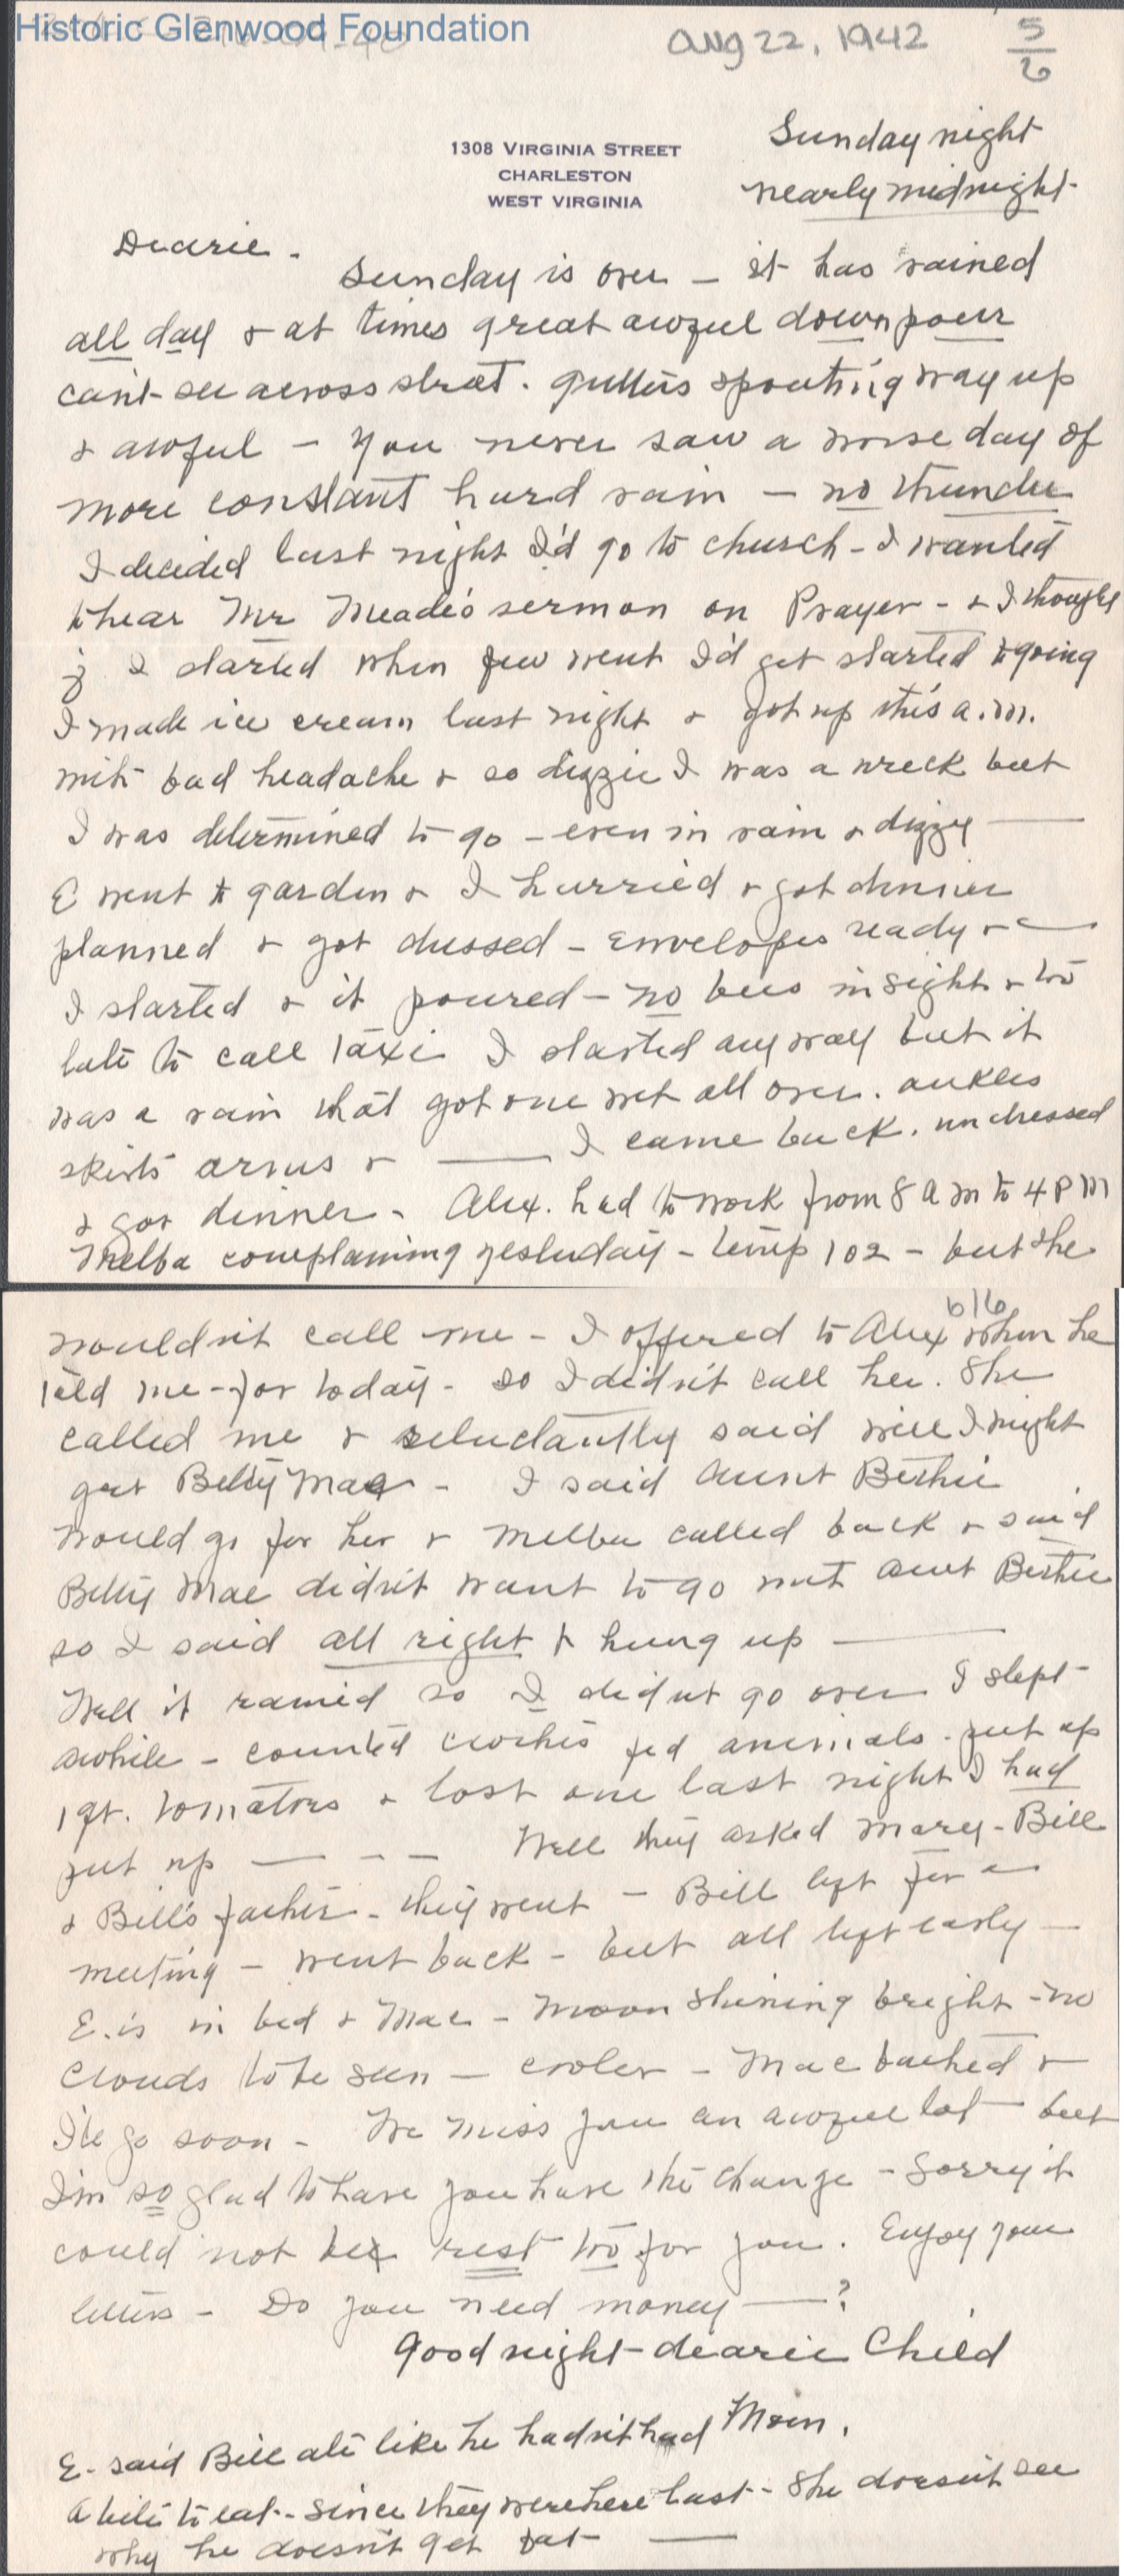 Historic Glenwood Foundation
Aug 22, 1942 5/6
Sunday night
nearly midnight-
1308 VIRGINIA STREET
CHARLESTON
WEST VIRGINIA
Dearie -
Sunday is over - it has rained
all day & at times great awful downpour
can't see across street. gutters spouting way up
& awful - You never saw a worse day of
more constant hard rain - no thunder
I decided last night I'd go to church - I wanted
to hear Mr Meade's sermon on Prayer - & I thought
if I started when few went I'd get started to going
I made ice cream last night & got up this a.m.
with bad headache & so dizzie I was a wreck but
I was determined to go - even in rain & dizzy —
E went to garden & I hurried & got dinner
planned & got dressed - envelopes ready & —
I started & it poured - no bus in sight & too
late to call taxi I started anyway but it
was a rain that got one wet all over. ankles
skirts arms & — I came back. undressed
& got dinner - Alex. had to work from 8 am to 4 PM
Melba complaining yesterday - temp 102 - but she
6/6
wouldn't call me - I offered to Alex when he
told me - for today - so I didn't call her. She
called me & reluctantly said well I might
get Betty Mae - I said Aunt Bertie
would go for her & Melba called back & said
Betty Mae didn't want to go with Aunt Bertie
so I said all right & hung up —
Well it rained so I did not go over I slept
awhile - counted clothes fed animals - put up
1 qt. tomatoes & lost one last night I had
put up — - - Well they asked Mary - Bill
& Bill's father - they went - Bill left for a
meeting - went back - but all left early —
E. is in bed & Mac - Moon shining bright - no
clouds to be seen - cooler - Mac bathed &
I'll go soon - We miss you an awful lot but
I'm so glad to have you have the change - Sorry it
could not be rest too for you. Enjoy your
letters - Do you need money —?
Good night - dearie Child
Mom.
E- said Bill ate like he hadn't had
a bite to eat - since they were here last - She doesn't see
why he doesn't get fat —